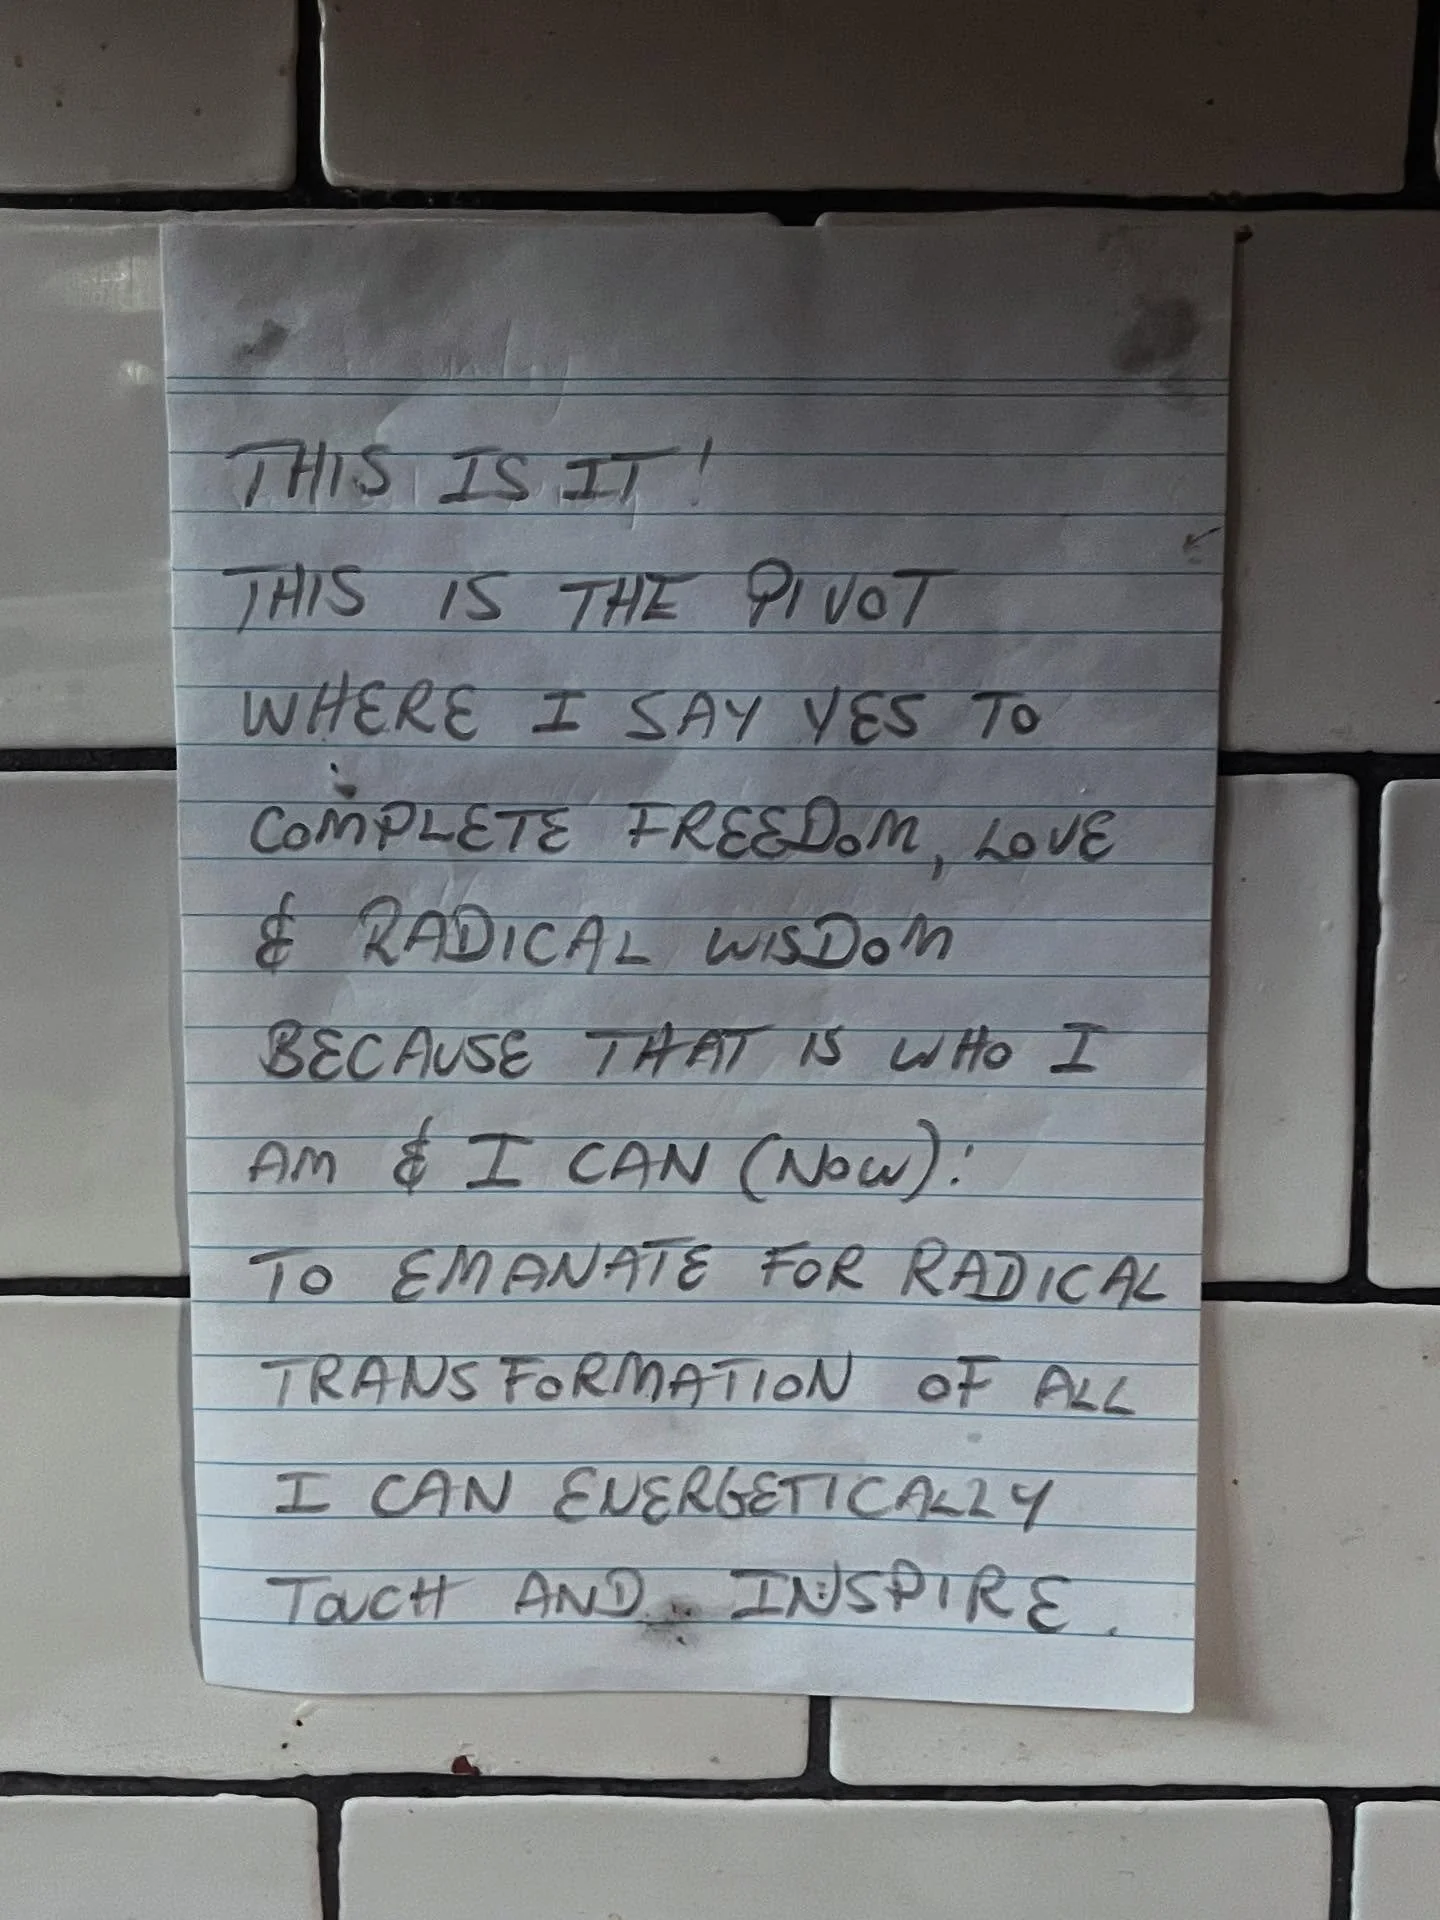 THIS IS IT!
THIS IS THE PIVOT
WHERE I SAY YES TO
COMPLETE FREEDOM, LOVE
& RADICAL WISDOM
BECAUSE THAT IS WHO I
AM & I CAN (NOW):
TO EMANATE FOR RADICAL
TRANSFORMATION OF ALL
I CAN ENERGETICALLY
TOUCH AND INSPIRE.